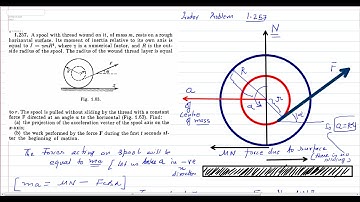 Irodov Problem 1.253
1.257. A spool with thread wound on it, of mass m, rests on a rough
horizontal surface. Its moment of inertia relative to its own axis is
equal to I = γmR², where γ is a numerical factor, and R is the out-
side radius of the spool. The radius of the wound thread layer is equal
Fig. 1.63.
to r. The spool is pulled without sliding by the thread with a constant
force F directed at an angle α to the horizontal (Fig. 1.63). Find:
(a) the projection of the acceleration vector of the spool axis on the
x-axis;
(b) the work performed by the force F during the first t seconds af-
ter the beginning of motion.
N
F
R
r
α
a
of
centre
of mass
μN force due to surface
[there is no
sliding]
The Forces acting on Spool will be
equal to ma [let us take a in -ve
direction]
[ma = μN - Fcosα]